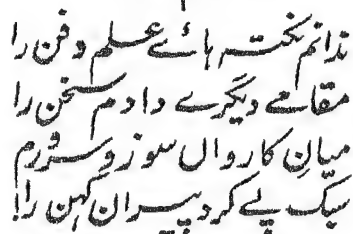 ندانم نکتہ ہائے علم و فن را
مقامے دیگرے دادم سخن را
میانِ کارواں سوز و سرورم
سبک پے کرد پیرانِ کہن را!